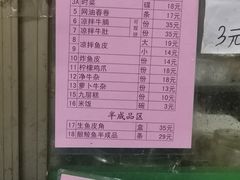 3A 时菜 碟 18元
5 网油春卷 条 17元
6 凉拌牛腩 份 35元
7 凉拌牛肚 份 35元
8 大 19元
9 凉拌鱼皮 小 14元
10 炸鱼皮 份 14元
11 柠檬鸡爪 份 18元
12 净牛杂 份 30元
13 萝卜牛杂 份 20元
15 九层糕 份 10元
16 米饭 碗 3元
半成品区
17 生鱼皮角 盒 35元
18 酿鲮鱼半成品 条 29元
3元